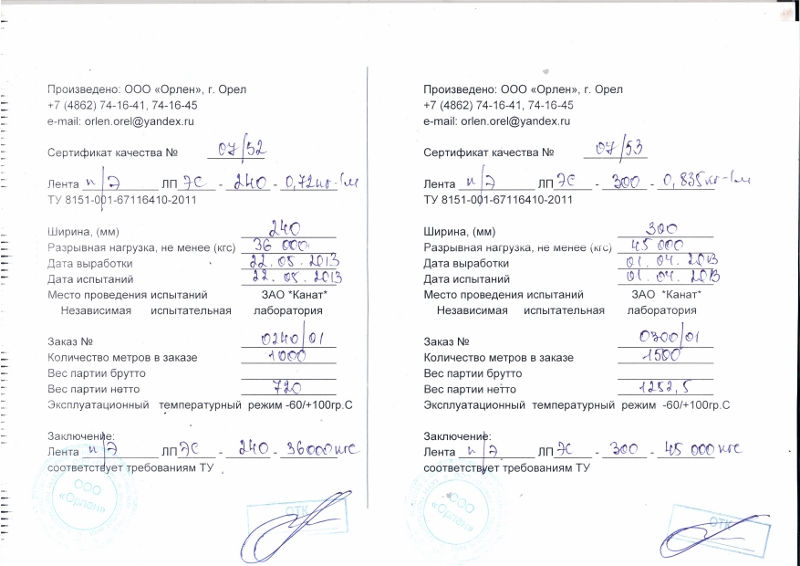 Произведено: ООО «Орлен», г. Орел
+7 (4862) 74-16-41, 74-16-45
e-mail: orlen.orel@yandex.ru
Сертификат качества № 07/52
Лента п/э ЛП ЭС - 240 - 0,72кг-1м
ТУ 8151-001-67116410-2011
Ширина, (мм) 240
Разрывная нагрузка, не менее (кгс) 36 000
Дата выработки 22.05.2013
Дата испытаний 22.05.2013
Место проведения испытаний ЗАО *Канат*
Независимая испытательная лаборатория
Заказ № 0240/01
Количество метров в заказе 1000
Вес партии брутто
Вес партии нетто 720
Эксплуатационный температурный режим -60/+100гр.С
Заключение:
Лента п/э ЛП ЭС - 240 - 36000 кгс
соответствует требованиям ТУ
ООО
«Орлен»
ОТК
Произведено: ООО «Орлен», г. Орел
+7 (4862) 74-16-41, 74-16-45
e-mail: orlen.orel@yandex.ru
Сертификат качества № 07/53
Лента п/э ЛП ЭС - 300 - 0,835кг-1м
ТУ 8151-001-67116410-2011
Ширина, (мм) 300
Разрывная нагрузка, не менее (кгс) 45 000
Дата выработки 01.04.2013
Дата испытаний 01.04.2013
Место проведения испытаний ЗАО *Канат*
Независимая испытательная лаборатория
Заказ № 0300/01
Количество метров в заказе 1500
Вес партии брутто
Вес партии нетто 1252,5
Эксплуатационный температурный режим -60/+100гр.С
Заключение:
Лента п/э ЛП ЭС - 300 - 45 000 кгс
соответствует требованиям ТУ
ООО
«Орлен»
ОТК